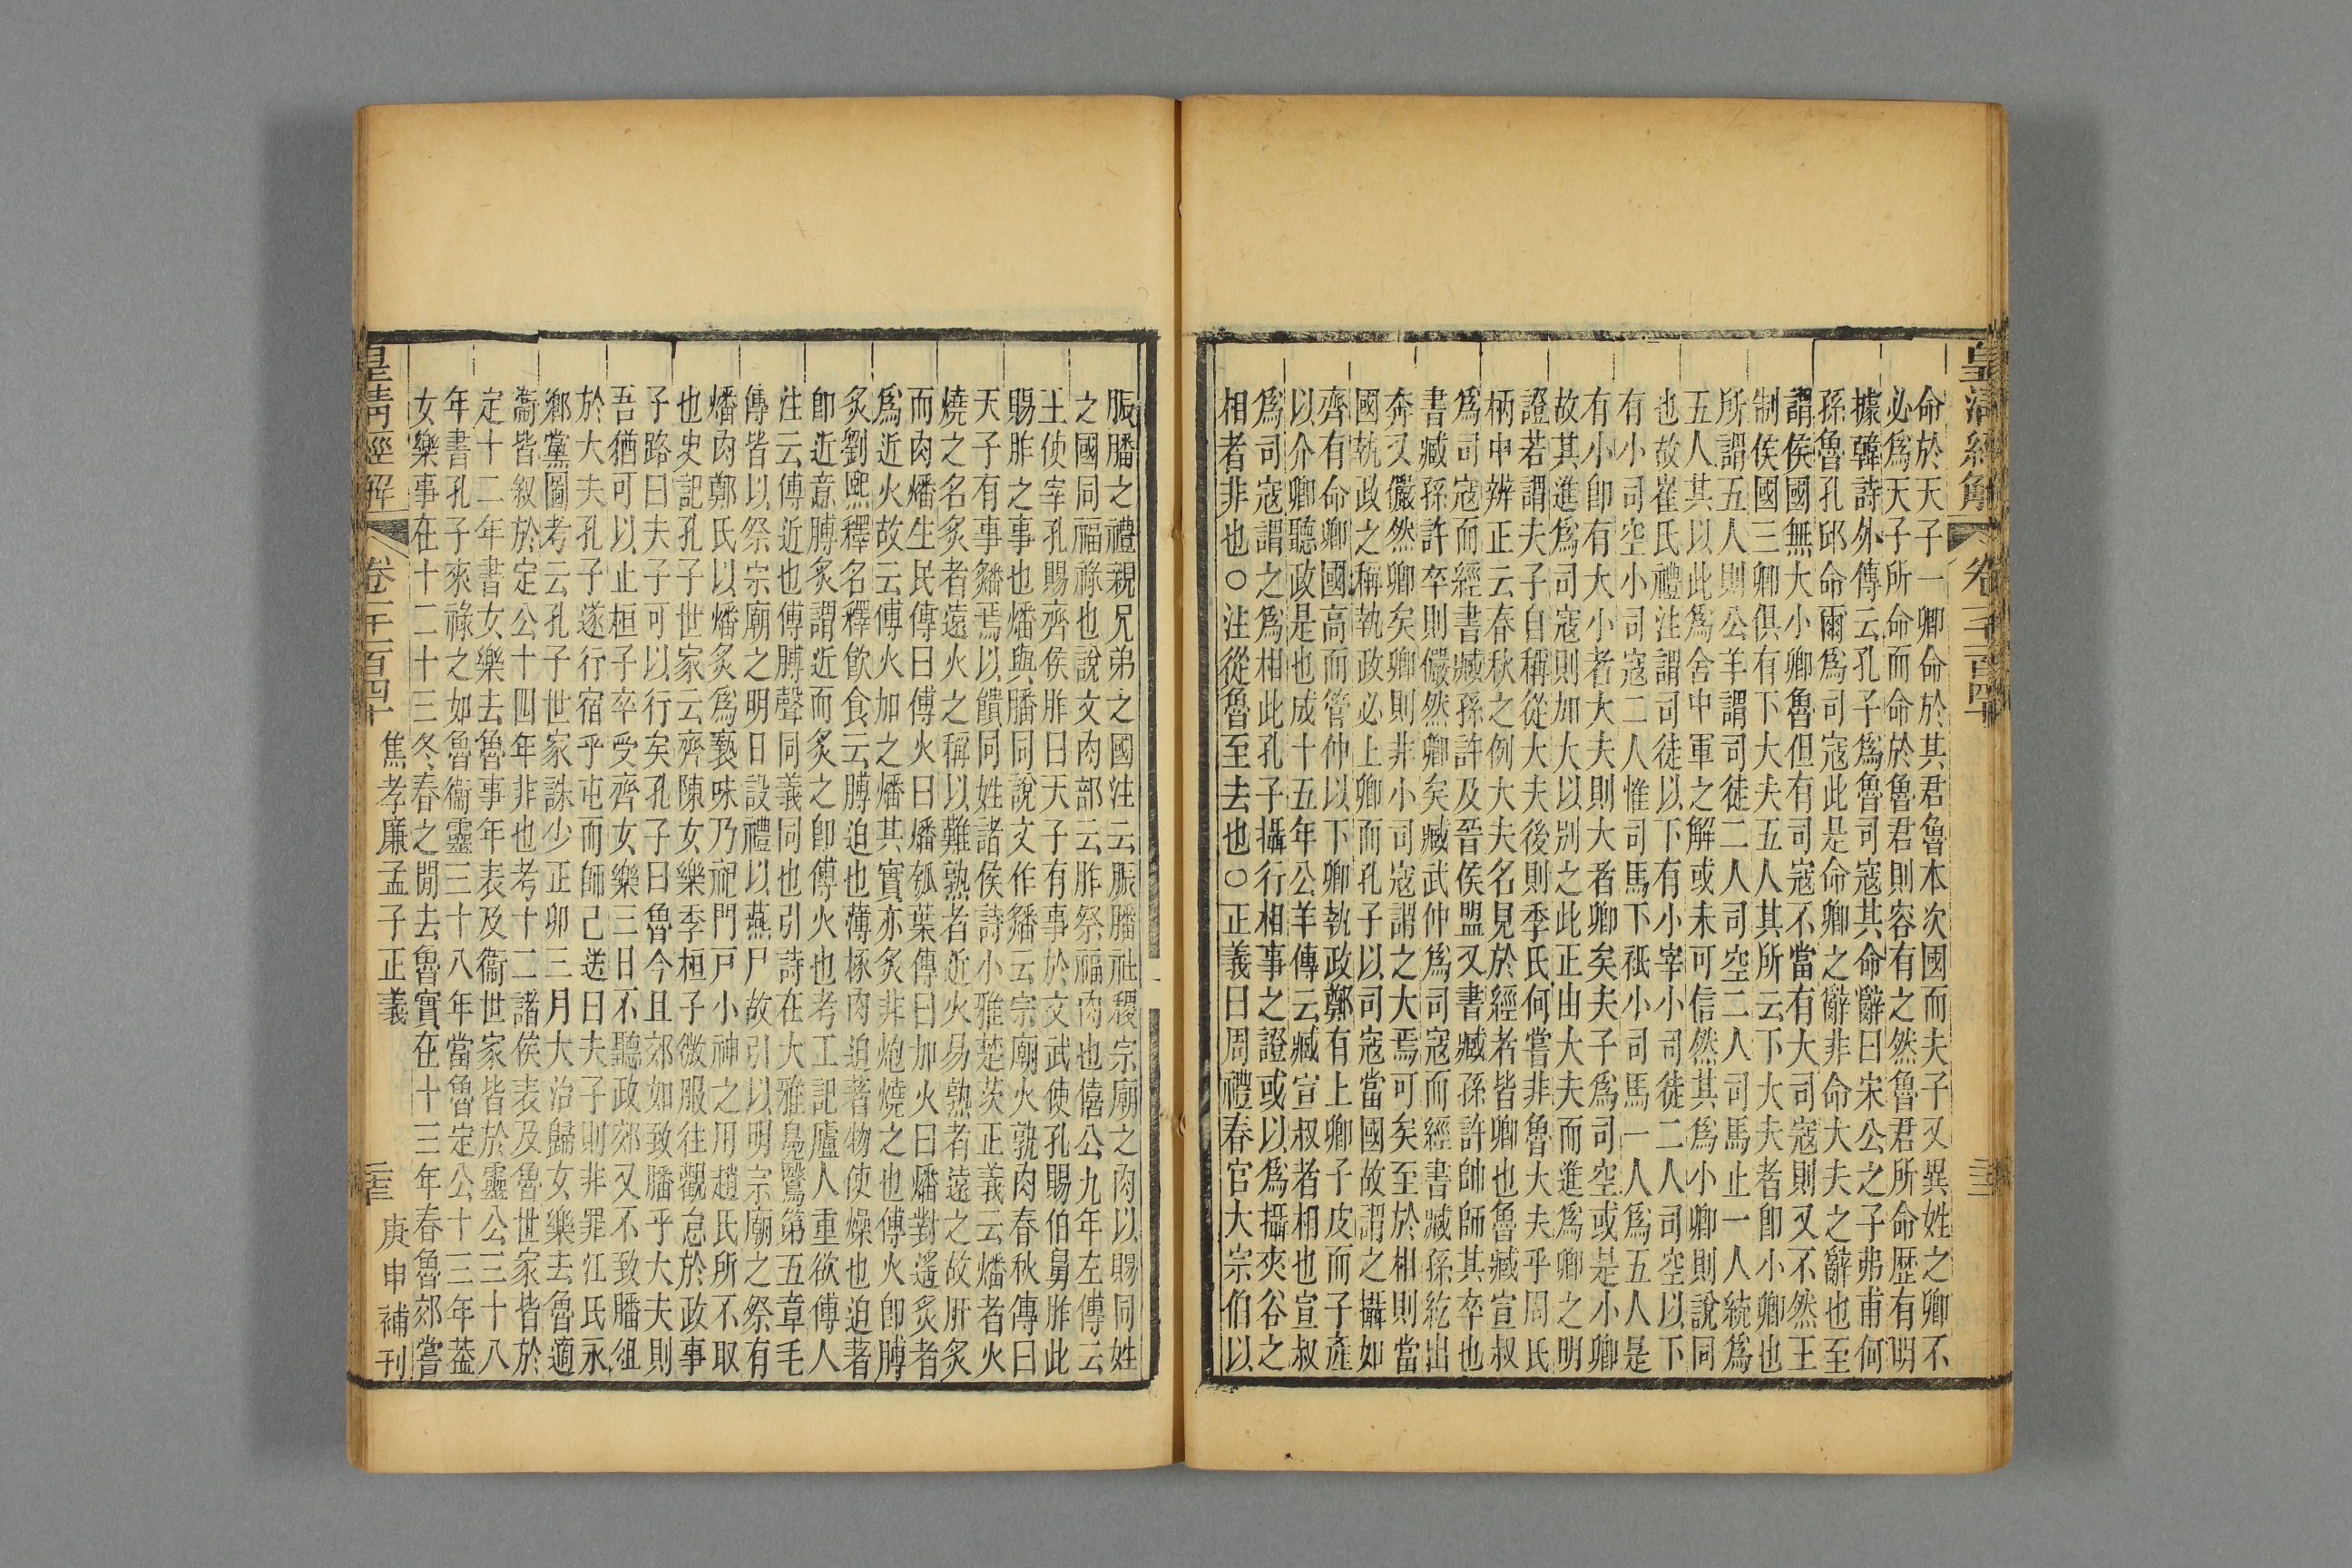 命於天子一卿命於其君魯本次國而夫子又異姓之卿不
必爲天子所命而命於魯君則容有之然魯君所命歷有明
據韓詩外傳云孔子爲魯司寇其命辭曰宋公之子弗甫何
孫魯孔邱命爾爲司寇此是命卿之辭非命大夫之辭也至
謂侯國無大小卿魯但有司寇不當有大司寇則又不然王
制侯國三卿俱有下大夫五人其所云下大夫者卽小卿也
所謂五人則公羊謂司徒二人司空二人司馬止一人統爲
五人其以此爲舍中軍之解或未可信然其爲小卿則說同
也故崔氏禮注謂司徒以下有小宰小司徒二人司空以下
有小司空小司寇二人惟司馬下祇小司馬一人爲五人是
有小卽有大小者大夫則大者卿矣夫子爲司空或是小卿
故其進爲司寇則加大以別之此正由大夫而進爲卿之明
證若謂夫子自稱從大夫後則季氏何嘗非魯大夫乎周氏
柄中辨正云春秋之例大夫名見於經者皆卿也魯臧宣叔
爲司寇而經書臧孫許及晉侯盟又書臧孫許帥師其卒也
書臧孫許卒則儼然卿矣臧武仲爲司寇而經書臧孫紇出
奔又儼然卿矣卿則非小司寇謂之大焉可矣至於相則當
國執政之稱執政必上卿而孔子以司寇當國故謂之攝如
齊有命卿國高而管仲以下卿執政鄭有上卿子皮而子產
以介卿聽政是也成十五年公羊傳云臧宣叔者相也宣叔
爲司寇謂之爲相此孔子攝行相事之證或以爲攝夾谷之
相者非也○注從魯至去也○正義曰周禮春官大宗伯以
皇清經解
卷一千一百四十
脤膰之禮親兄弟之國注云脤膰社稷宗廟之肉以賜同姓
之國同福祿也說文肉部云胙祭福肉也僖公九年左傳云
王使宰孔賜齊侯胙曰天子有事於文武使孔賜伯舅胙此
賜胙之事也燔與膰同說文作𤒥云宗廟火孰肉春秋傳曰
天子有事𤒥焉以饋同姓諸侯詩小雅楚茨正義云燔者火
燒之名炙者遠火之稱以難熟者近火易熟者遠之故肝炙
而肉燔生民傳曰傅火曰燔瓠葉傳曰加火曰燔對遙炙者
爲近火故云傅火加之燔其實亦炙非炮燒之也傅火卽膊
炙劉熙釋名釋飲食云膊迫也薄椓肉迫著物使燥也迫著
卽近意膊炙謂近而炙之卽傅火也考工記廬人重欲傅人
注云傅近也傅膊聲同義同也引詩在大雅鳧鷖第五章毛
傳皆以祭宗廟之明日設禮以燕尸故引以明宗廟之祭有
燔肉鄭氏以燔炙爲褻味乃祀門戸小神之用趙氏所不取
也史記孔子世家云齊陳女樂季桓子微服往觀怠於政事
子路曰夫子可以行矣孔子曰魯今且郊如致膰乎大夫則
吾猶可以止桓子卒受齊女樂三日不聽政郊又不致膰俎
於大夫孔子遂行宿乎屯而師己送曰夫子則非罪江氏永
鄉黨圖考云孔子世家誅少正卯三月大治歸女樂去魯適
衞皆敘於定公十四年非也考十二諸侯表及魯世家皆於
定十二年書女樂去魯事年表及衞世家皆於靈公三十八
年書孔子來祿之如魯衞靈三十八年當魯定公十三年蓋
女樂事在十二十三冬春之閒去魯實在十三年春魯郊嘗
皇清經解
卷一千一百四十
焦孝廉孟子正義
庚申補刊